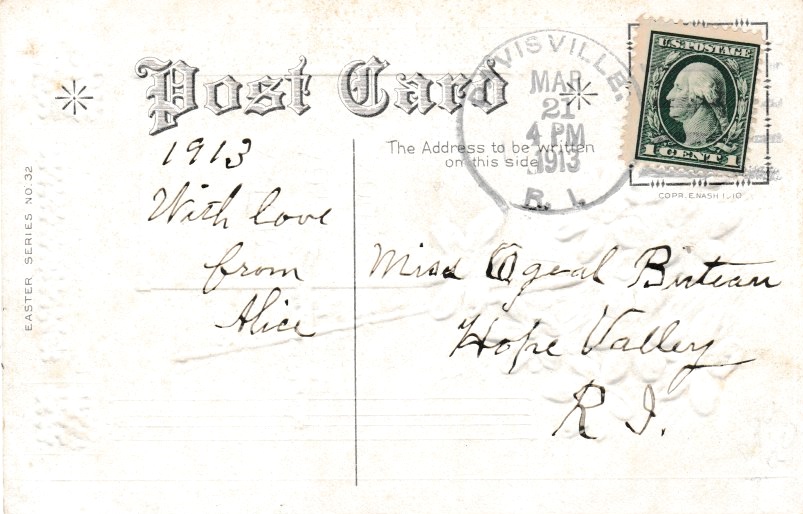 Post Card
DAVISVILLE.
MAR
21
4 PM
1913
R. I.
U.S. POSTAGE
1 CENT 1
The Address to be written
on this side
COPR. E. NASH 1910
EASTER SERIES NO. 32
1913
With love
from
Alice
Miss
Hope Valley
R I.